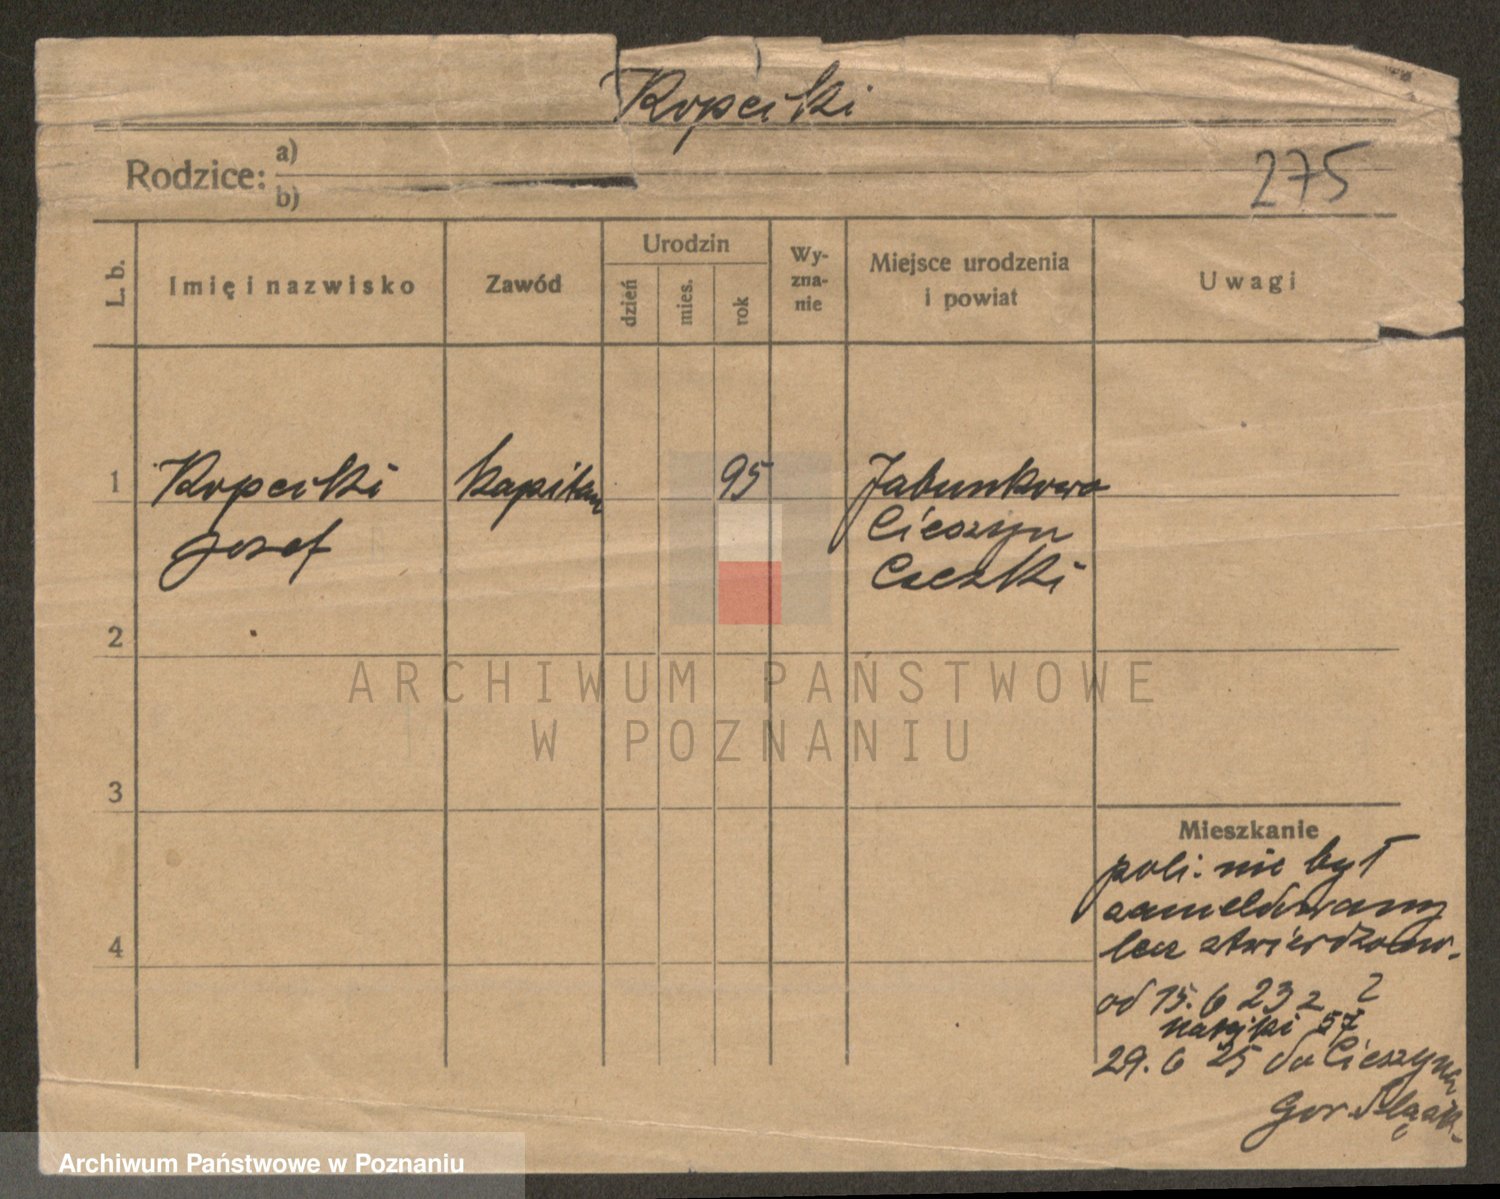 Kopecki
Rodzice:
a)
b)
275
L. b.
Imię i nazwisko
Zawód
Urodzin
dzień
mies.
rok
Wy-
zna-
nie
Miejsce urodzenia
i powiat
Uwagi
1
Kopecki
Josef
kapitan
95
Jabunkowo
Cieszyn
Czeski
2
3
4
ARCHIWUM PAŃSTWOWE
W POZNANIU
Mieszkanie
poli. nie był
zameldowany
lecz stwierdzono.
od 15. 6 23 z ?
57
29. 6 25 do Cieszyna
Gor. Śląsk.
Archiwum Państwowe w Poznaniu